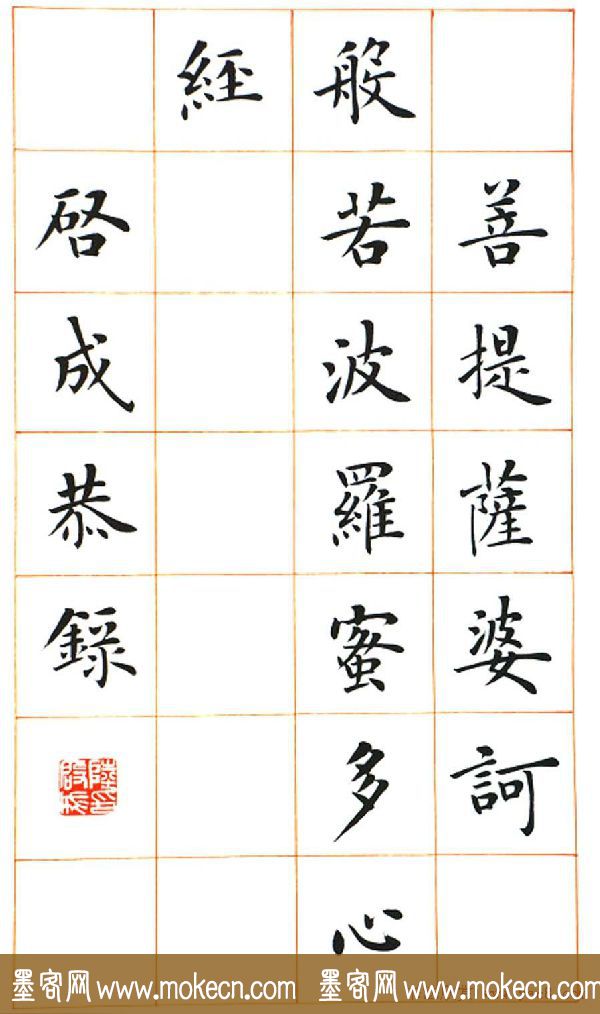 善提薩婆訶
般若波羅蜜多心
經
啓成恭錄
陸啓成印
墨客网 www.mokecn.com 墨客网 www.mokecn.com